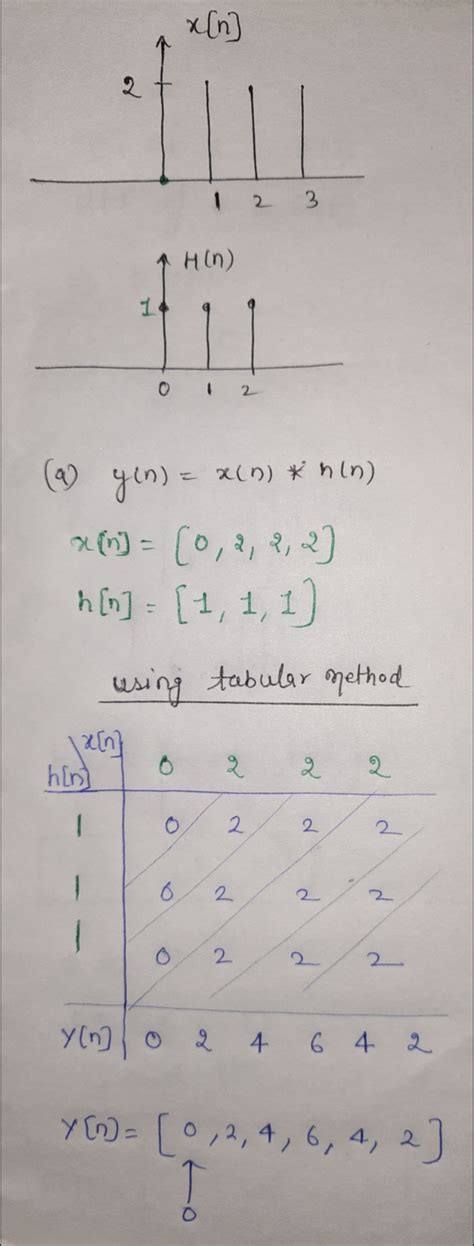 x[n]
2
1 2 3
H(n)
1
0 1 2
(a) y(n) = x(n) * h(n)
x[n] = [0, 2, 2, 2]
h[n] = [1, 1, 1]
using tabular method
x[n]
h[n] 0 2 2 2
1 0 2 2 2
1 0 2 2 2
1 0 2 2 2
Y[n] 0 2 4 6 4 2
Y[n] = [0, 2, 4, 6, 4, 2]
↑
0